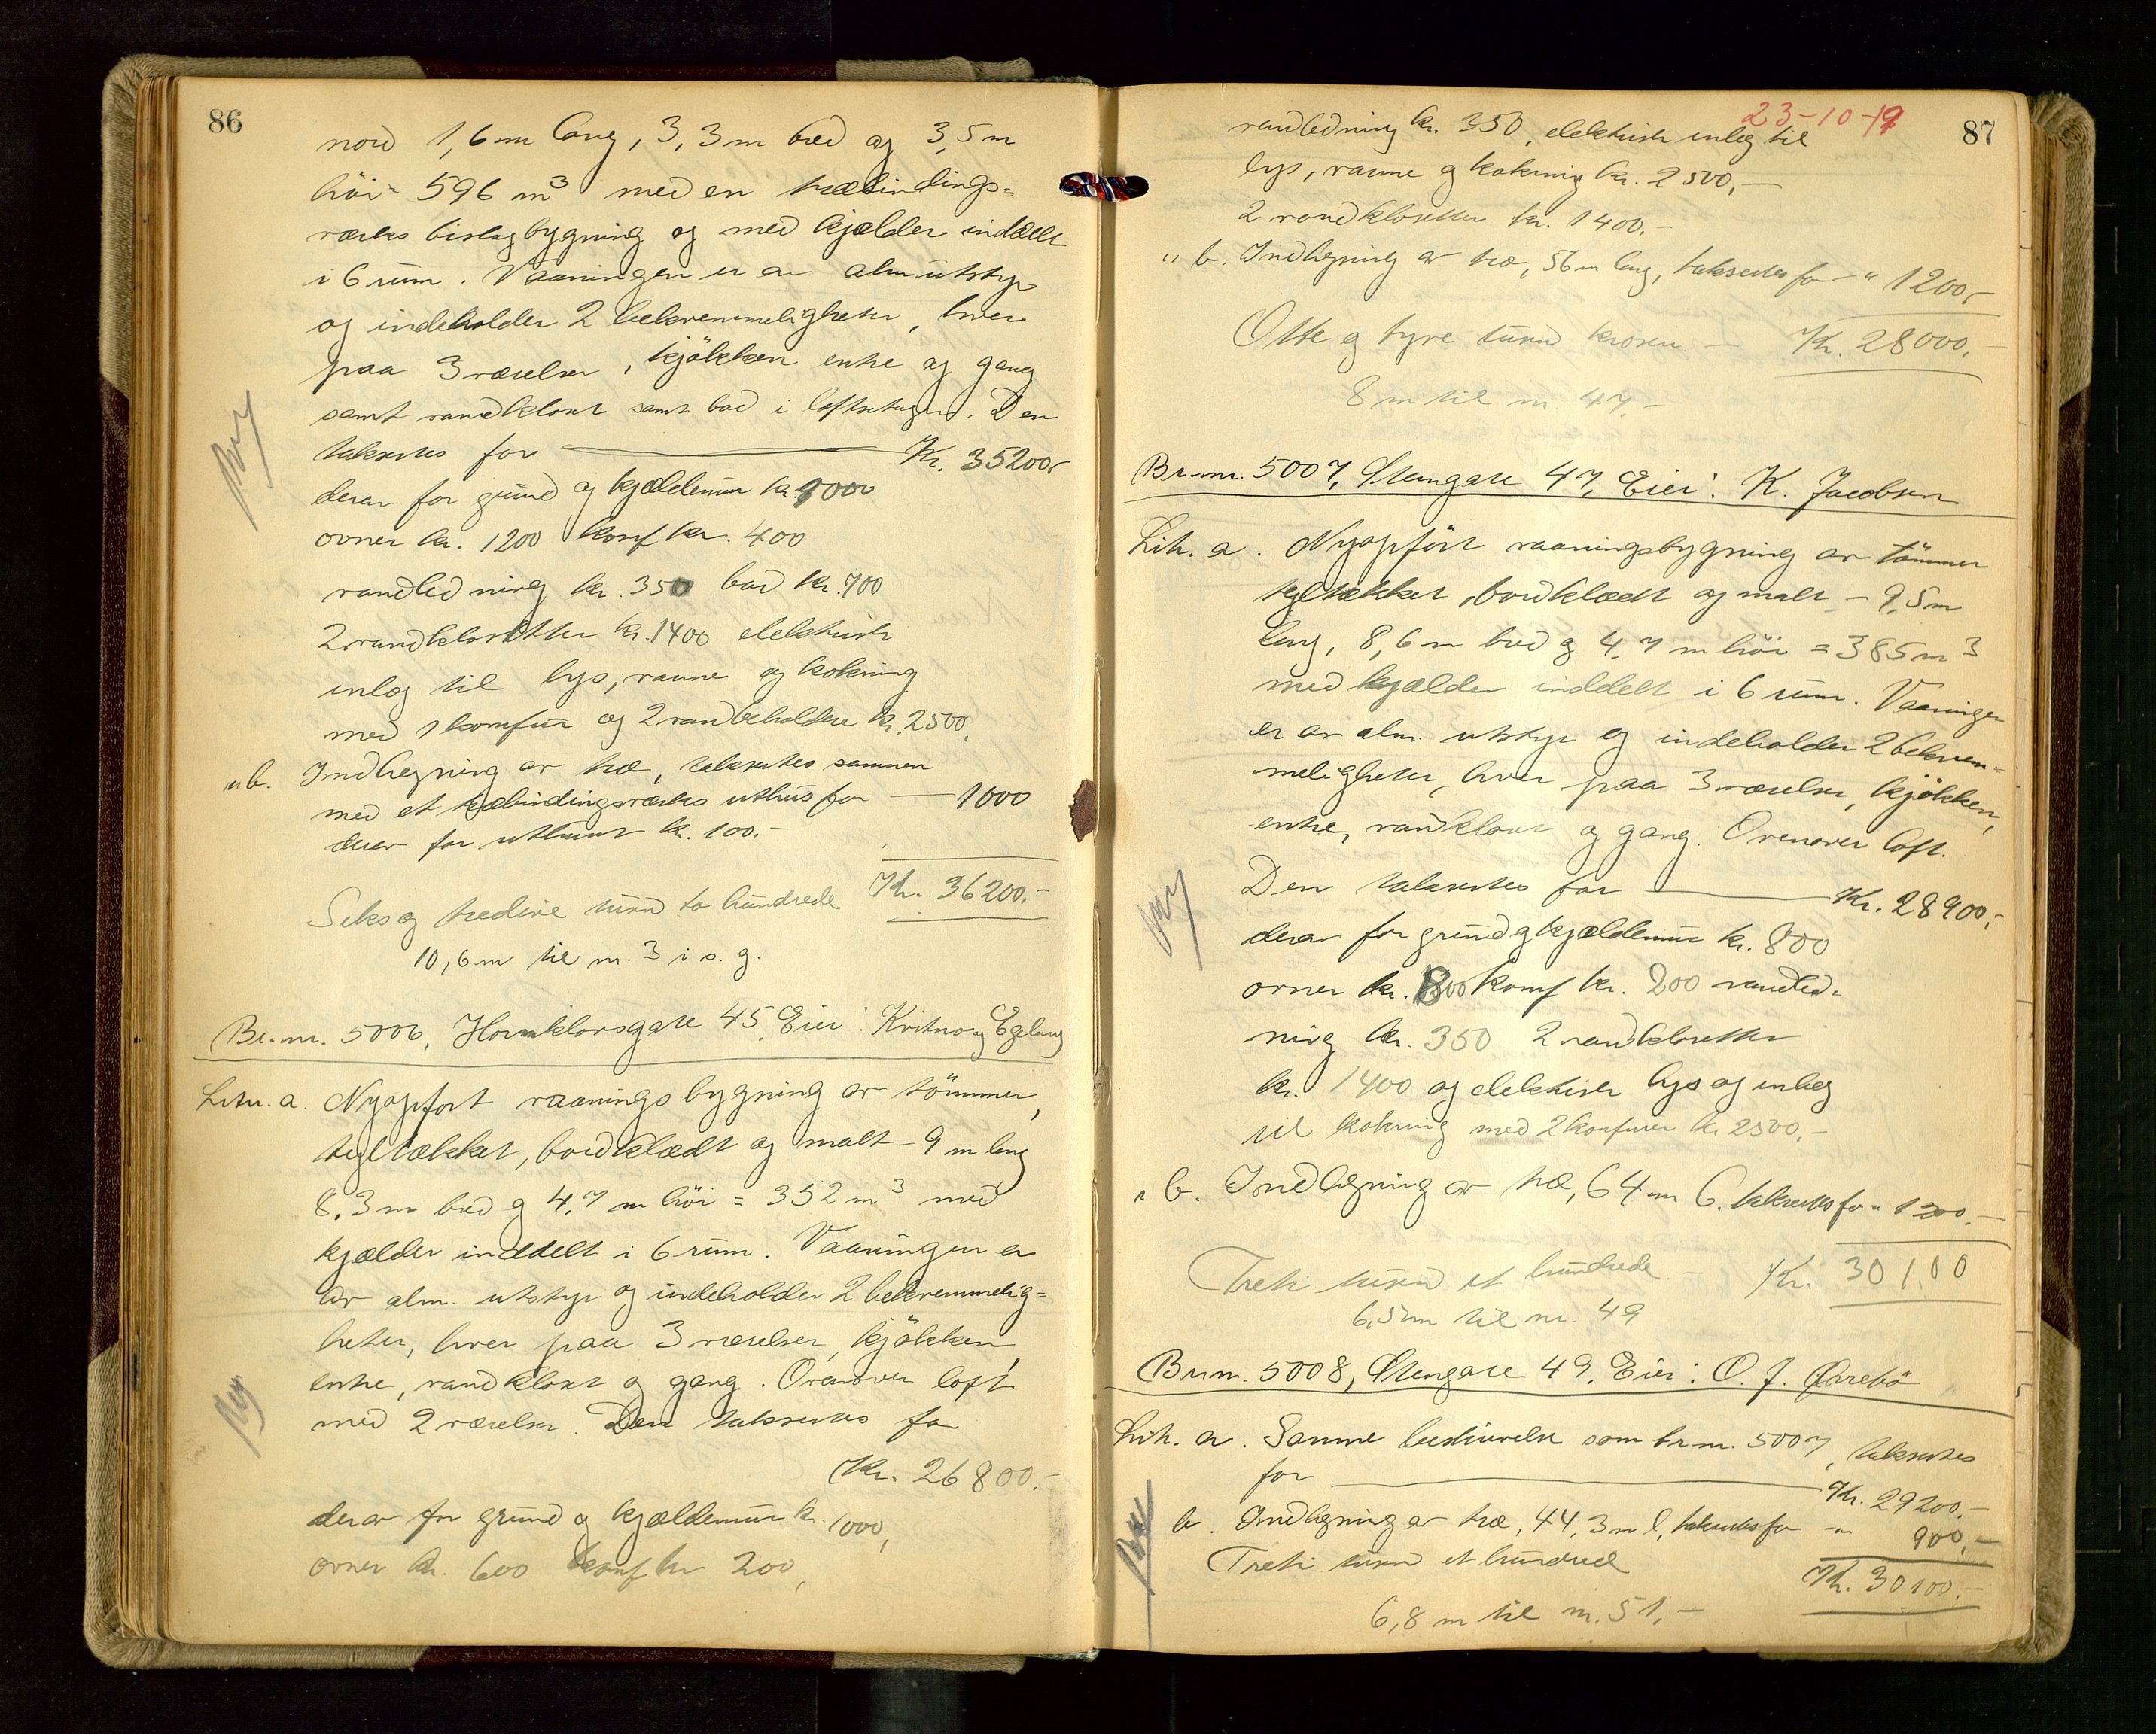 86
nord 1,6 m lang, 3,3 m bred og 3,5 m
höi = 596 m³ med en træbindings=
værks bislagbygning og med kjælder inddelt
i 6 rum. Vaaningen er av alm utstyr
og indeholder 2 bekvemmeligheter, hver
paa 3 værelser, kjökken entre og gang
samt vandklosét samt bad i loftsetagen. Den
takseres for Kr. 35200,-
derav for grund og kjældermur kr. 1000
ovner kr. 1200 komf kr. 400
vandledning kr. 350 bad kr. 700
2 vandklosetter kr. 1400 elektrisk
inlæg til lys, varme og kokning
med 1 komfur og 2 vandbeholdere kr. 2500,
" b. Indhegning av træ, takseres sammen
med et træbindingsværks uthus for — 1000
derav for uthuset kr. 100.-
Kr. 36200.-
Seks og tredive tusen to hundrede
10,6 m til nr. 3 i s. g.
Ny
Br.nr. 5006, Hornklovsgate 45, Eier: Kvitno og Egeland
Litr. a. Nyopfört vaaningsbygning av tömmer,
tegltækket, bordklædt og malt - 9 m lang
8,3 m bred og 4,7 m höi = 352 m³ med
kjælder inddelt i 6 rum. Vaaningen er
av alm. utstyr og indeholder 2 bekvemmelig=
heter, hver paa 3 værelser, kjökken,
entre, vandkloset og gang. Ovenover loft
med 2 værelser. Den takseres for
Kr. 26800.-
derav for grund og kjældermur kr. 1000,
ovner kr. 600 komf kr 200,
Ny
23-10-19
87
vandledning kr. 350, elektrisk inlæg til
lys, varme og kokning kr. 2500,-
2 vandklosetter kr. 1400.-
" b. Indhegning av træ, 56 m lang, takseres for - " 1200,-
Otte og tyve tusen kroner - Kr. 28000,-
8 m til nr 47.-
Br.nr. 5007, Stengate 47, Eier: K. Jacobsen
Litr. a. Nyopfört vaaningsbygning av tömmer
tegltækket, bordklædt og malt - 9,5 m
lang, 8,6 m bred og 4,7 m höi = 385 m³
med kjælder inddelt i 6 rum. Vaaningen
er av alm. utstyr og indeholder 2 bekvem=
meligheter, hver paa 3 værelser, kjökken,
entre, vandkloset og gang. Ovenover loft.
Den takseres for Kr. 28900,-
derav for grund og kjældermur kr. 800
ovner kr. 800 komf kr. 200 vandled=
ning kr. 350 2 vandklosetter
kr. 1400 og elektrisk lys og inlæg
til kokning med 2 komfurer kr 2500,-
" b. Indhegning av træ, 64 m l. takseres for " 1200,-
Treti tusen et hundrede - Kr. 30100
6,5 m til nr. 49
Ny
Br.nr. 5008, Stengate 49, Eier: O. J. Övrebö
Litr. a. Samme beskrivelse som br.nr. 5007, takseres
for Kr. 29200,-
b. Indhegning av træ, 44,3 m l, takseres for - " 900,-
Treti tusen et hundred Kr. 30100.-
6,8 m til nr. 51.-